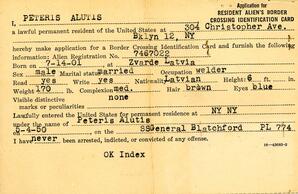 Application for
RESIDENT ALIEN'S BORDER
CROSSING IDENTIFICATION CARD
I, PETERIS ALUTIS
a lawful permanent resident of the United States at 304 Christopher Ave.
Bklyn 12, NY
hereby make application for a Border Crossing Identification Card and furnish the following
information: Alien Registration No. 7467022
Born on 7-14-01 at Zvarde Latvia
Sex male Marital status married Occupation welder
Read yes Write yes Nationality Latvian Height 6 ft. in.
Weight 170 lb. Complexion med. Hair brown Eyes blue
Visible distinctive
marks or peculiarities none
Lawfully entered the United States for permanent residence at NY NY
under the name of Peteris Alutis
on 5-4-50 on the SSGeneral Blatchford PL 774
I have never been arrested, indicted, or convicted of any offense.
OK Index